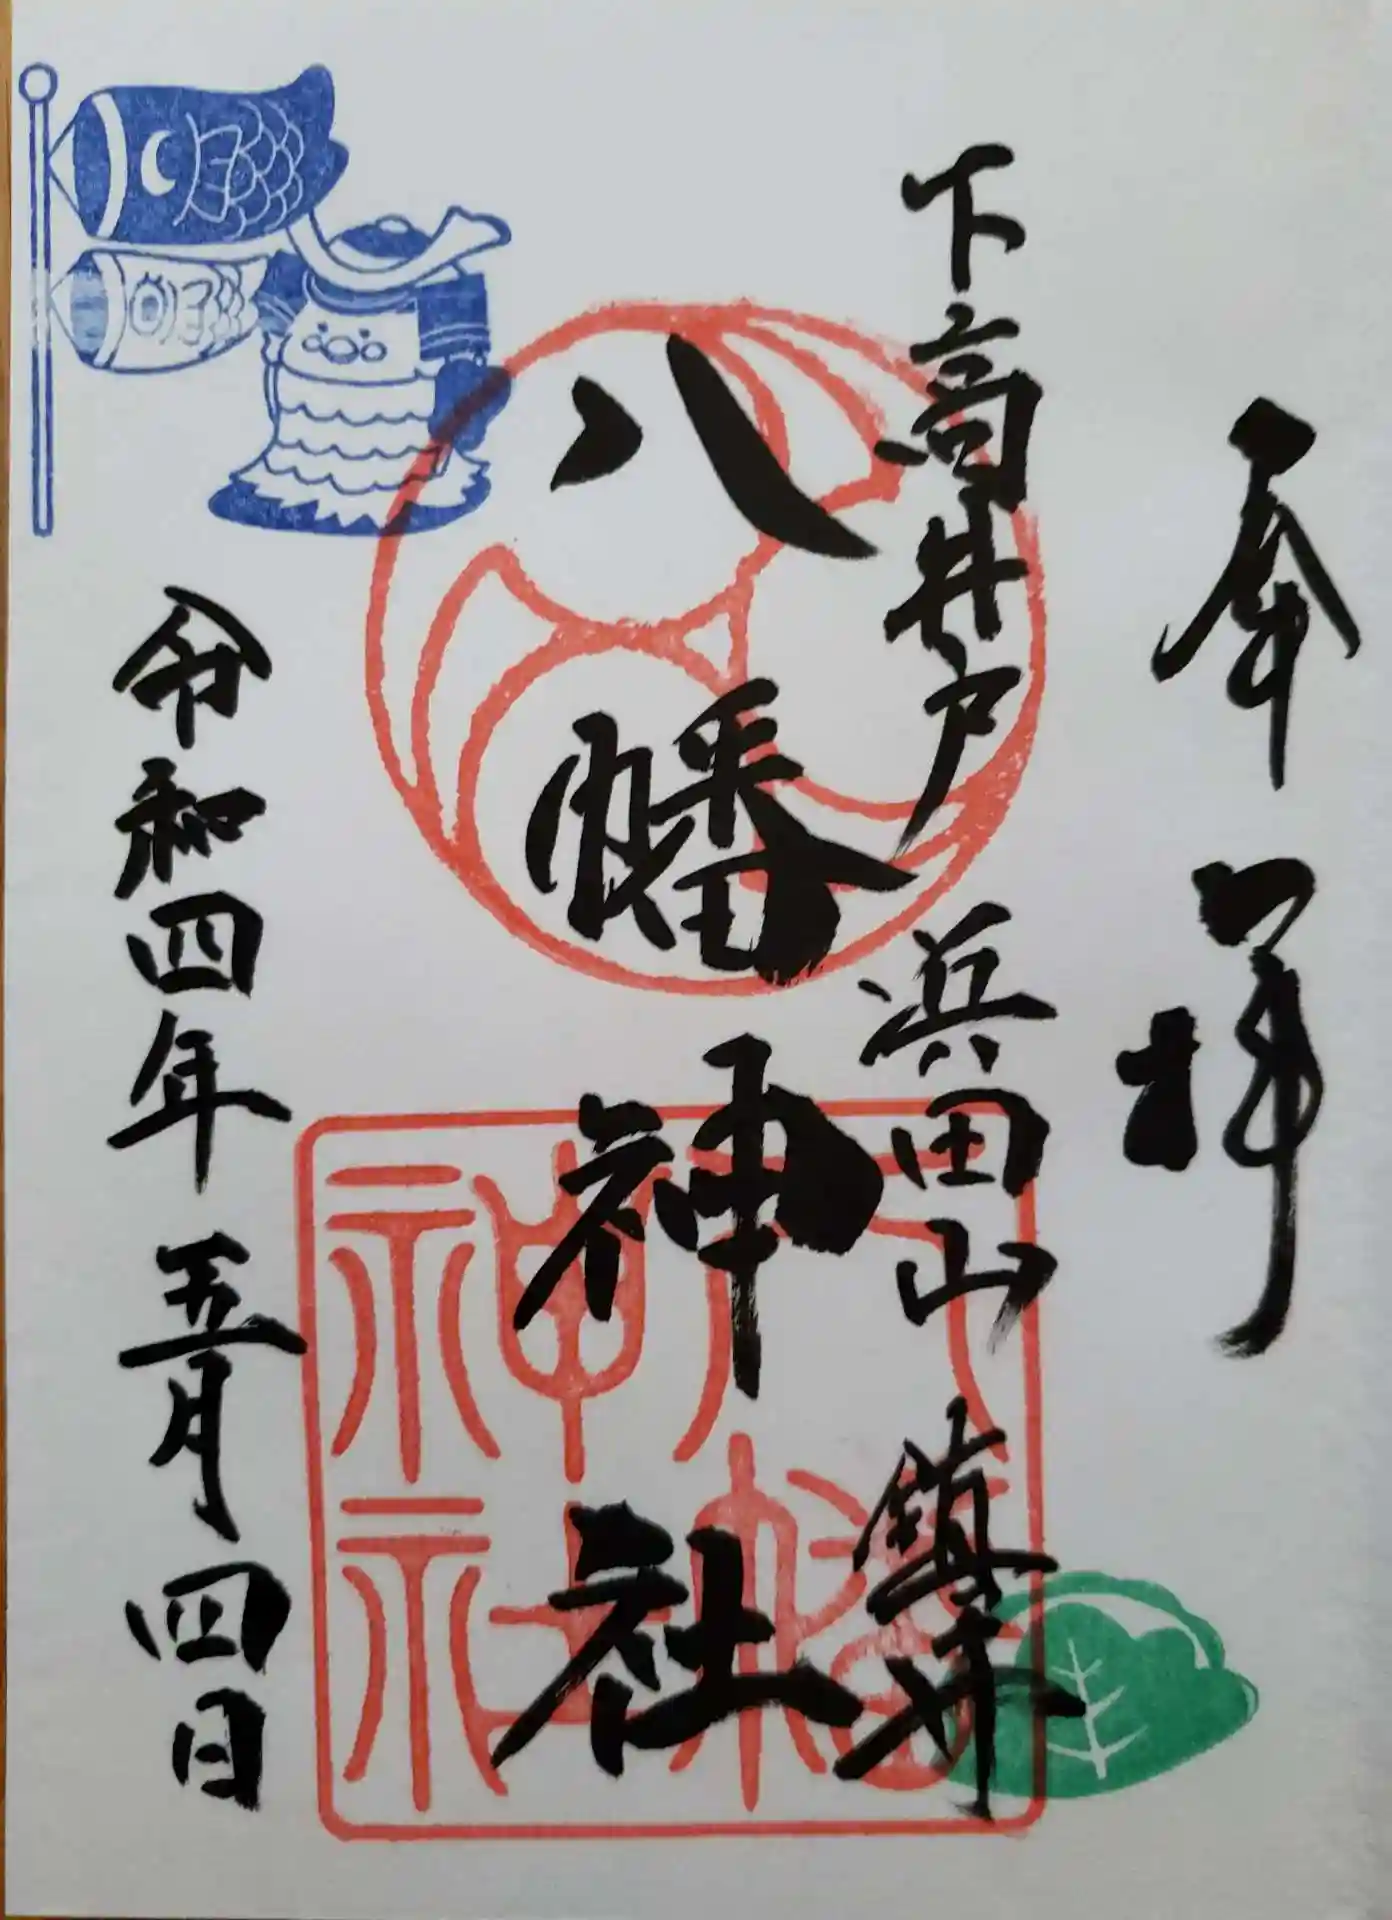 奉拝
下高井戸 浜田山 鎮守
八幡神社
令和四年 五月四日
八幡神社